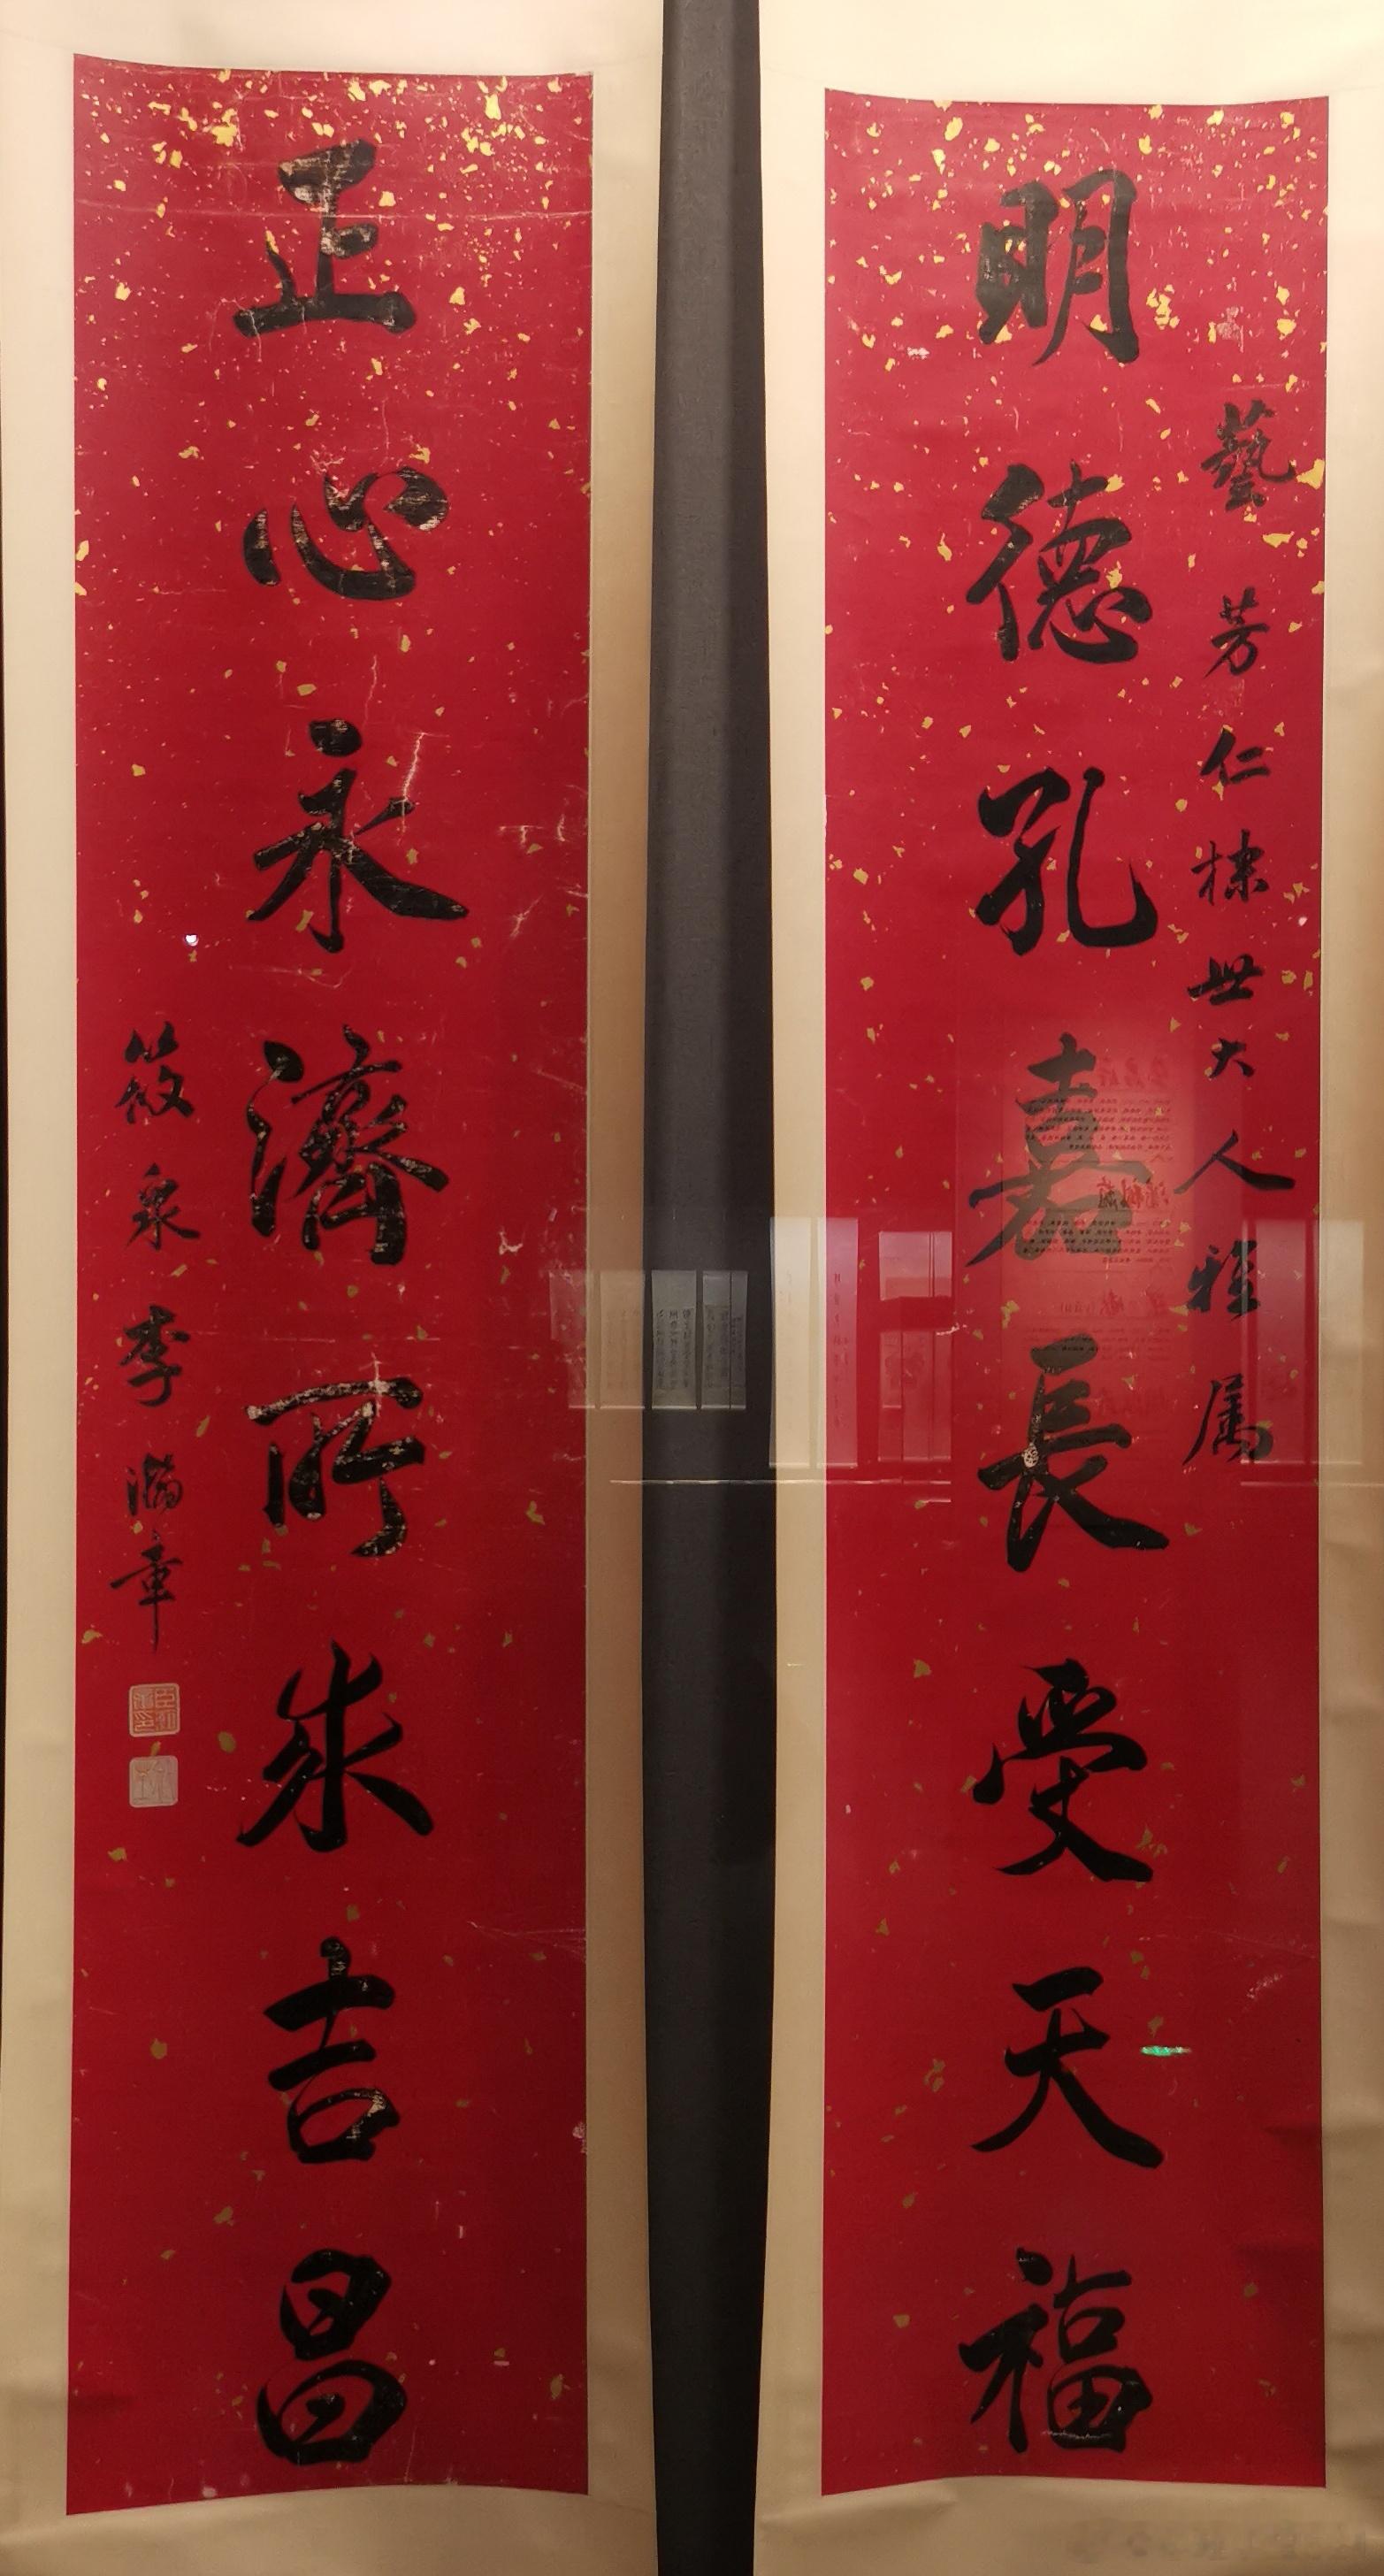 藝芳仁棣世大人雅属
明德孔嘉長受天福
正心永濟所求吉昌
筱泉李瀚章